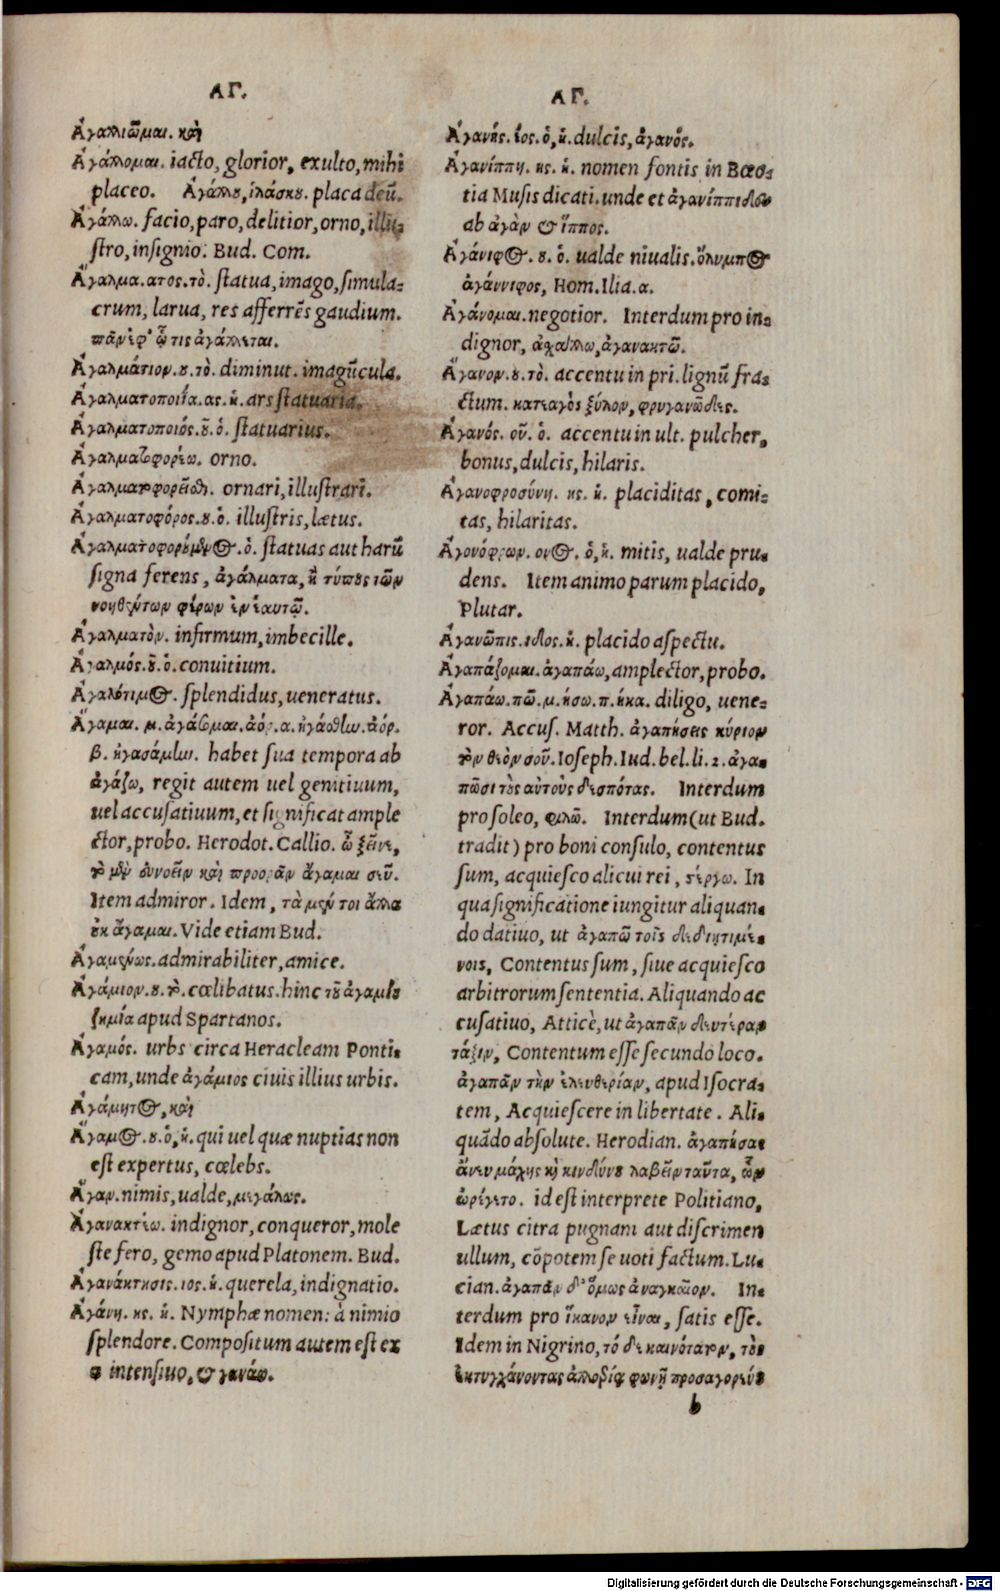 ΑΓ.
Ἀγαλλιῶμαι. καὶ
Ἀγάλλομαι. iacto, glorior, exulto, mihi
placeo. Ἀγάλλου, ἱλάσκου. placa deū.
Ἀγάλλω. facio, paro, delitior, orno, illu-
stro, insignio. Bud. Com.
Ἄγαλμα. ατος. τὸ. statua, imago, simula-
crum, larua, res afferrēs gaudium.
πᾶν ἐφ' ᾧ τις ἀγάλλεται.
Ἀγαλμάτιον. ου. τὸ. diminut. imagūcula.
Ἀγαλματοποιΐα. ας. ἡ. ars statuaria.
Ἀγαλματοποιός. οῦ. ὁ. statuarius.
Ἀγαλματοφορέω. orno.
Ἀγαλματοφορεῖσθαι. ornari, illustrari.
Ἀγαλματοφόρος. ου. ὁ. illustris, lætus.
Ἀγαλματοφορούμενος. ὁ. statuas aut harū
signa ferens, ἀγάλματα, ἢ τύπους τῶν
νοηθέντων φέρων ἐν ἑαυτῷ.
Ἀγαλματὸν. infirmum, imbecille.
Ἀγαλμός. οῦ. ὁ. conuitium.
Ἀγαλότιμος. splendidus, ueneratus.
Ἄγαμαι. μ. ἀγάσομαι. ἀόρ. α. ἠγάσθην. ἀόρ.
β. ἠγασάμην. habet sua tempora ab
ἀγάζω, regit autem uel genitiuum,
uel accusatiuum, et significat ample
ctor, probo. Herodot. Callio. ὦ ξεῖνε,
τὸ μὲν εὐνοεῖν καὶ προορᾶν ἄγαμαι σεῦ.
Item admiror. Idem, τὰ μέν τοι ἄλλα
ἐκ ἄγαμαι. Vide etiam Bud.
Ἀγαμένως. admirabiliter, amice.
Ἀγάμιον. ου. τὸ. cœlibatus. hinc τοῦ ἀγαμίου
ζημία apud Spartanos.
Ἀγαμός. urbs circa Heracleam Ponti-
cam, unde ἀγάμιος ciuis illius urbis.
Ἀγάμητος, καὶ
Ἄγαμος. ου. ὁ, ἡ. qui uel quæ nuptias non
est expertus, cœlebs.
Ἄγαν. nimis, ualde, μεγάλως.
Ἀγανακτέω. indignor, conqueror, mole
ste fero, gemo apud Platonem. Bud.
Ἀγανάκτησις. ιος. ἡ. querela, indignatio.
Ἀγάνη. ης. ἡ. Nymphæ nomen: à nimio
splendore. Compositum autem est ex
α intensiuo, & γανάω.
ΑΓ.
Ἀγανής. έος. ὁ, ἡ. dulcis, ἀγανός.
Ἀγανίππη. ης. ἡ. nomen fontis in Bœo-
tia Musis dicati. unde et ἀγανίππιδες
ab ἀγὰν & ἵππος.
Ἀγάνιφος. ου. ὁ. ualde niualis. ὄλυμπος
ἀγάννιφος, Hom. Ilia. α.
Ἀγάνομαι. negotior. Interdum pro in-
dignor, ἀχάλλω, ἀγανακτῶ.
Ἄγανον. ου. τὸ. accentu in pri. lignū fra-
ctum. κατεαγὸς ξύλον, φρυγανῶδες.
Ἀγανός. οῦ. ὁ. accentu in ult. pulcher,
bonus, dulcis, hilaris.
Ἀγανοφροσύνη. ης. ἡ. placiditas, comi-
tas, hilaritas.
Ἀγονόφρων. ονος. ὁ, ἡ. mitis, ualde pru-
dens. Item animo parum placido,
Plutar.
Ἀγανῶπις. ιδος. ἡ. placido aspectu.
Ἀγαπάζομαι. ἀγαπάω, amplector, probo.
Ἀγαπάω. πῶ. μ. ήσω. π. ηκα. diligo, uene-
ror. Accus. Matth. ἀγαπήσεις κύριον
τὸν θεὸν σοῦ. Ioseph. Iud. bel. li. 2. ἀγα-
πῶσι τοὺς αὐτοὺς δεσπότας. Interdum
pro soleo, φιλῶ. Interdum (ut Bud.
tradit) pro boni consulo, contentus
sum, acquiesco alicui rei, στέργω. In
qua significatione iungitur aliquan-
do datiuo, ut ἀγαπῶ τοῖς δεδιῃτημέ-
νοις, Contentus sum, siue acquiesco
arbitrorum sententia. Aliquando ac
cusatiuo, Atticè, ut ἀγαπᾶν δευτέραν
τάξιν, Contentum esse secundo loco.
ἀγαπᾶν τὴν ἐλευθερίαν, apud Isocra-
tem, Acquiescere in libertate. Ali-
quādo absolute. Herodian. ἀγαπήσας
ἄνευ μάχης καὶ κινδύνου λαβεῖν ταῦτα, ὧν
ὠρέγετο. id est interprete Politiano,
Lætus citra pugnam aut discrimen
ullum, cōpotem se uoti factum. Lu-
cian. ἀγαπᾶν δ' ὅμως ἀναγκαῖον. In-
terdum pro ἵκανον εἶναι, satis esse.
Idem in Nigrino, τό δε καινότατον, τοὺς
ἐντυγχάνοντας ἀλλοτρίᾳ φωνῇ προσαγορεύο
b
Digitalisierung gefördert durch die Deutsche Forschungsgemeinschaft - DFG